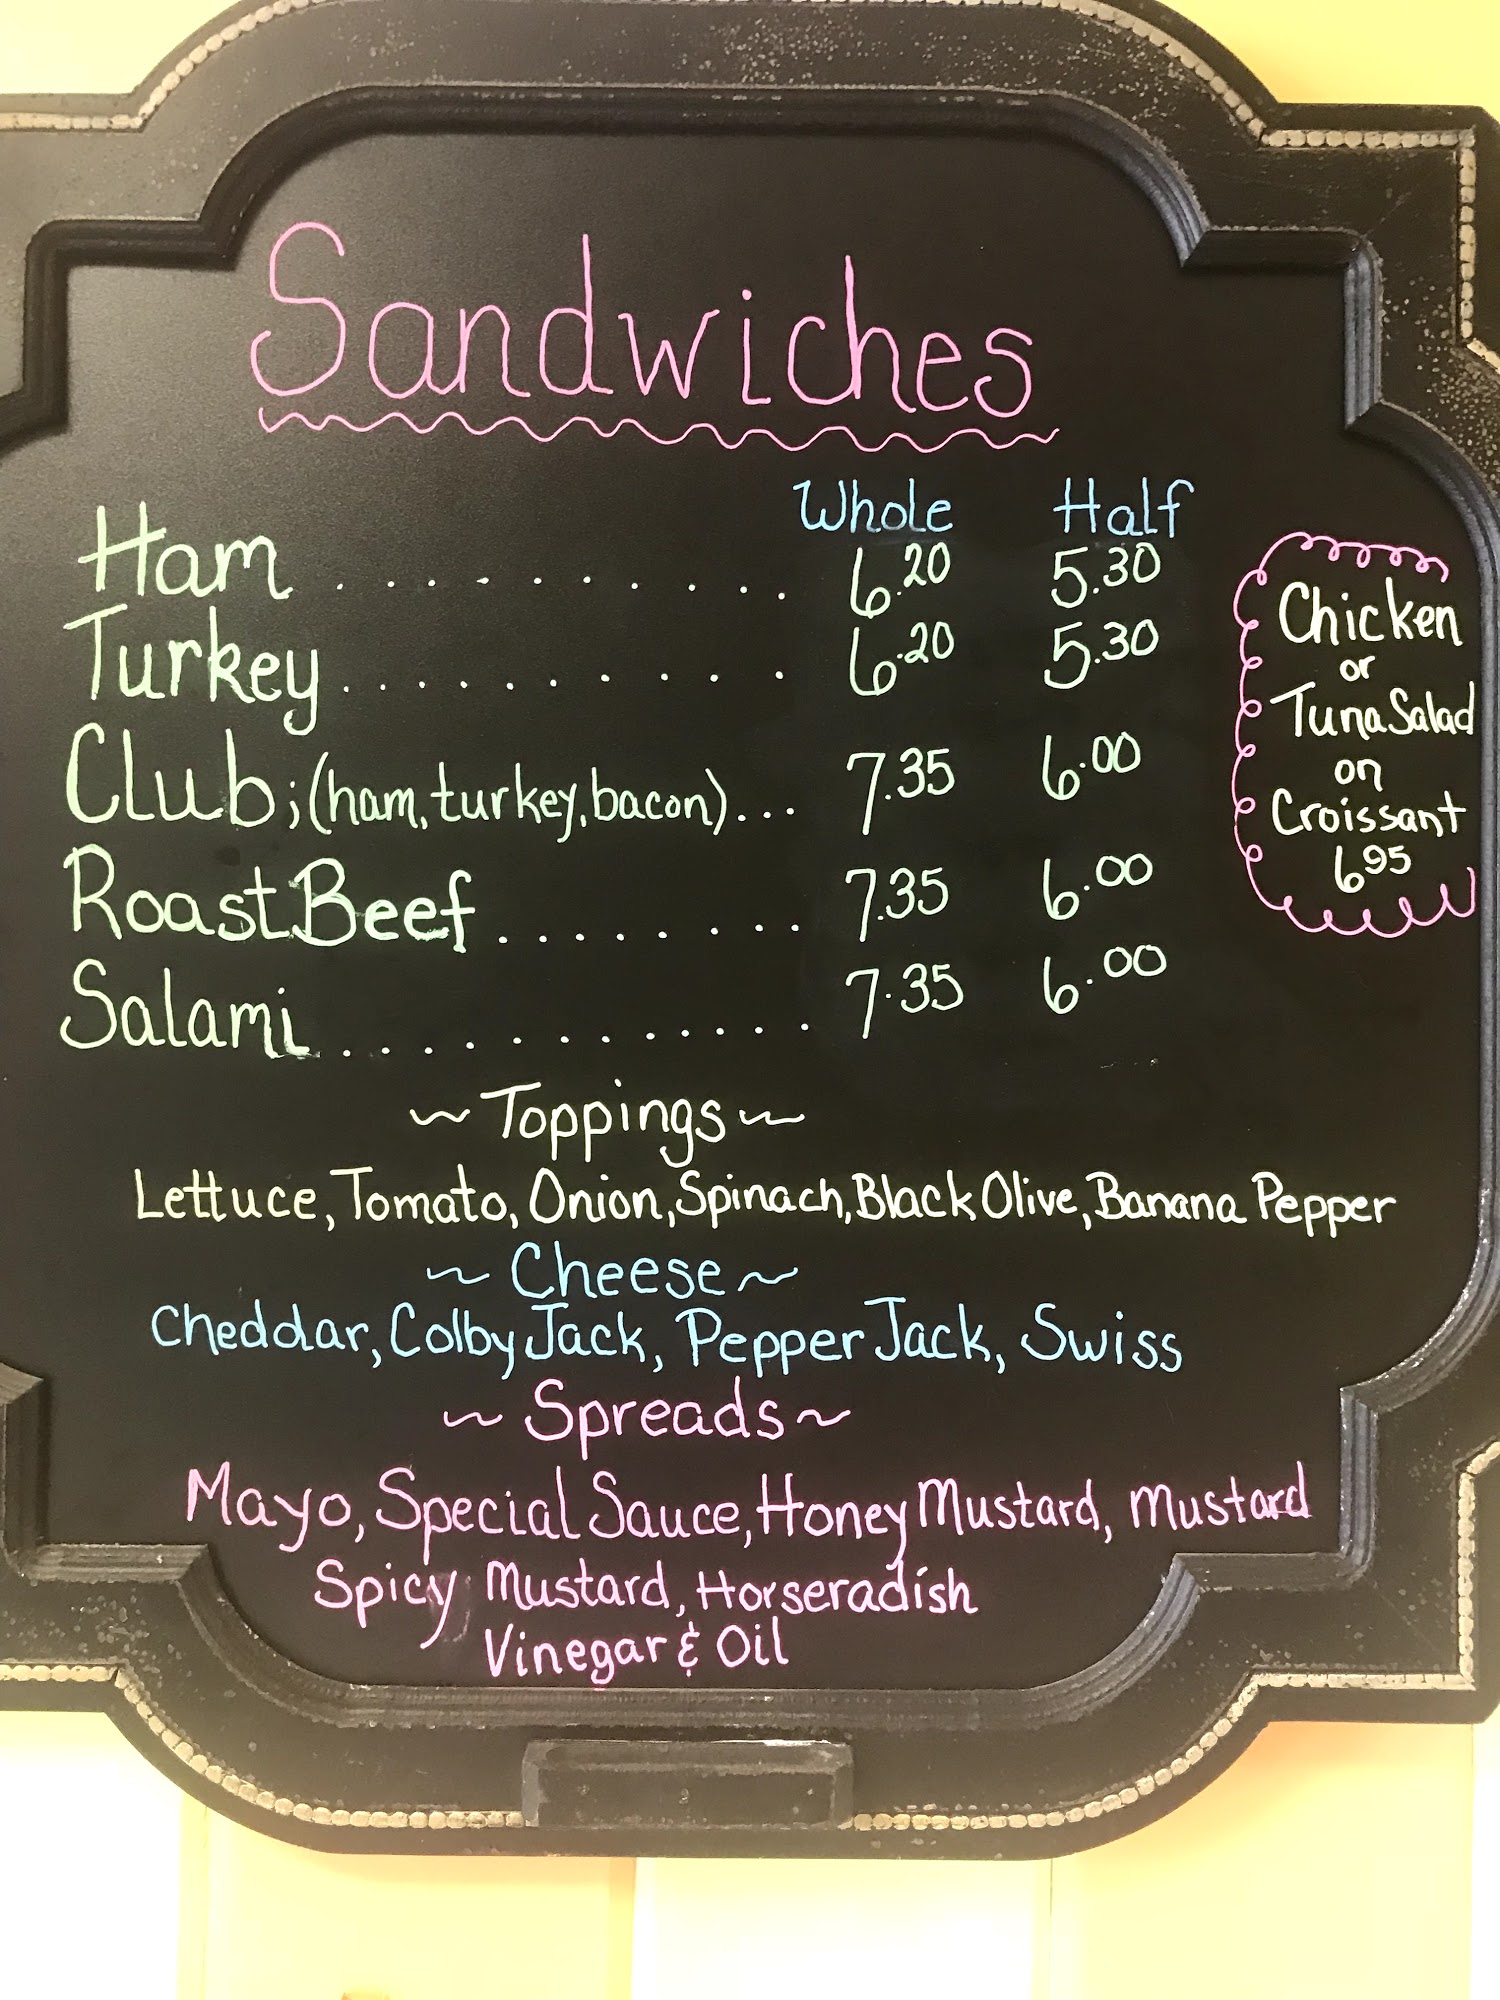 Sandwiches
Whole Half
Ham ........... 6.20 5.30
Turkey ........... 6.20 5.30
Club;(ham, turkey, bacon)... 7.35 6.00
Roast Beef ........ 7.35 6.00
Salami ............ 7.35 6.00
Chicken
or
Tuna Salad
on
Croissant
6 95
~Toppings~
Lettuce, Tomato, Onion, Spinach, Black Olive, Banana Pepper
~ Cheese ~
Cheddar, Colby Jack, Pepper Jack, Swiss
~ Spreads ~
Mayo, Special Sauce, Honey Mustard, Mustard
Spicy Mustard, Horseradish
Vinegar & Oil